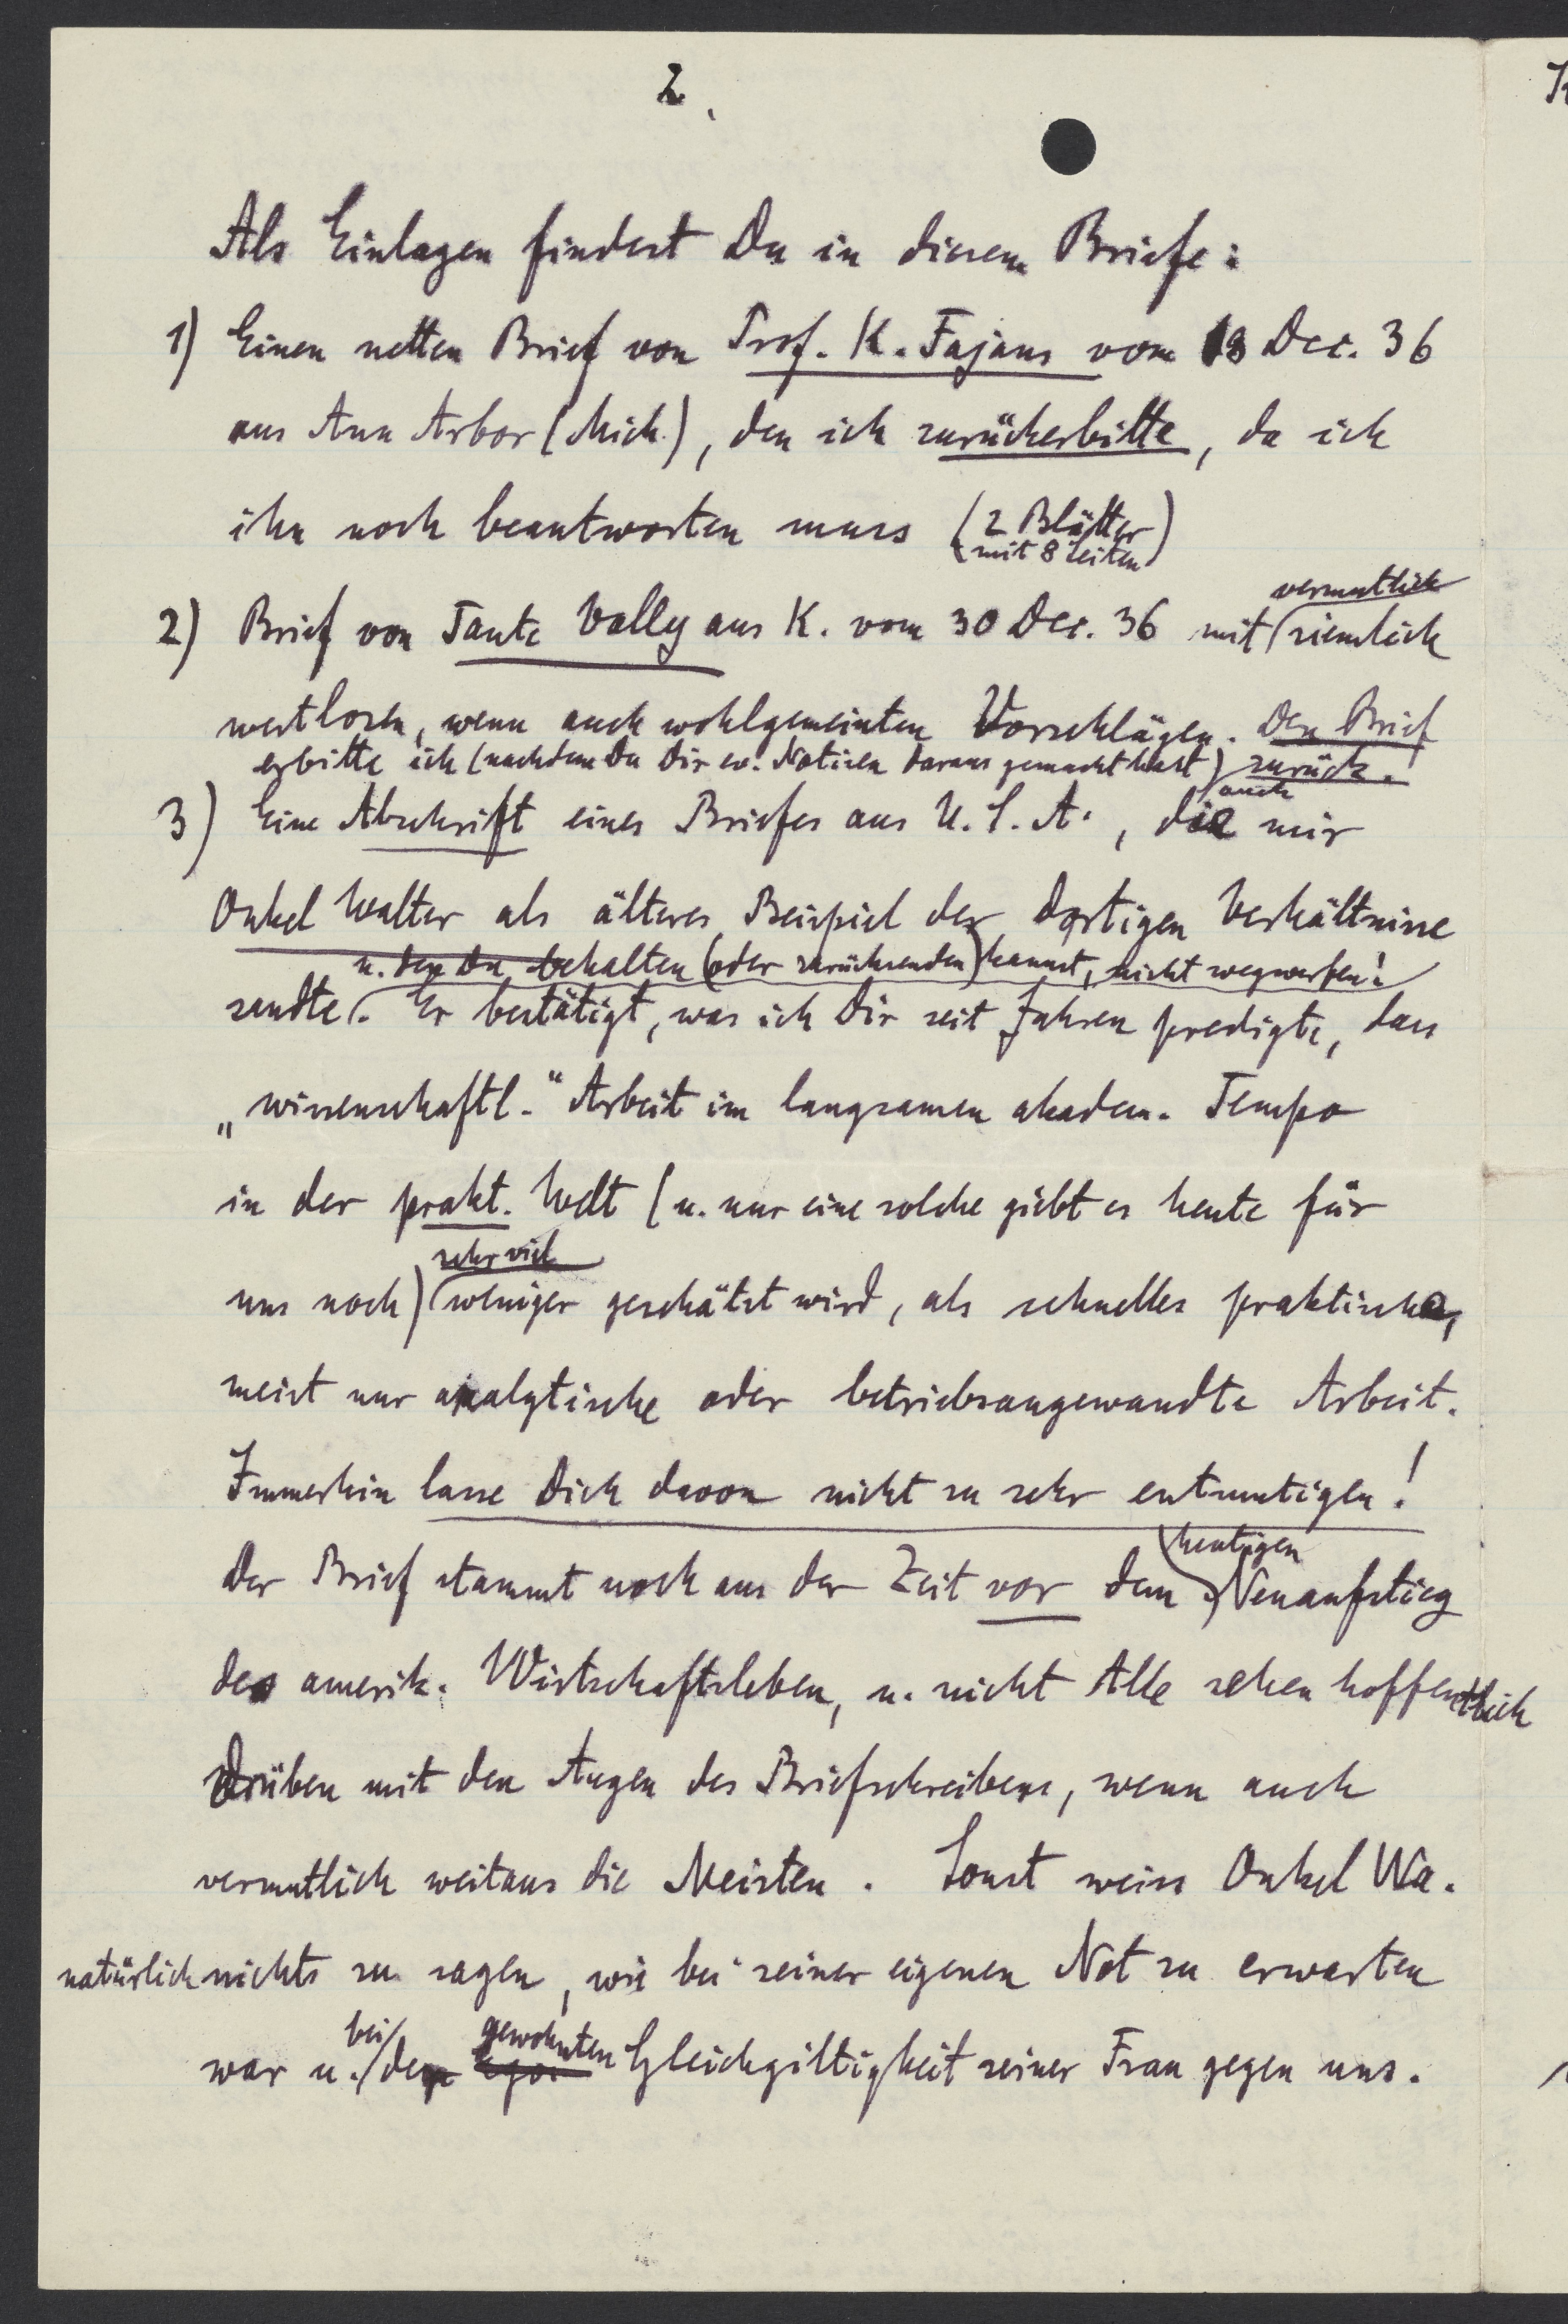 2.
Als Einlagen findest Du in diesem Briefe:
1) Einen netten Brief von Prof. K. Fajans vom 18 Dec. 36
aus Ann Arbor (Mich.), den ich zurückerbitte, da ich
ihn noch beantworten muss (2 Blätter
mit 8 Seiten)
vermutlich
2) Brief von Tante Vally aus K. vom 30 Dec. 36 mit ziemlich
wertlosen, wenn auch wohlgemeinten Vorschlägen. Den Brief
erbitte ich (nachdem Du Dir ev. Notizen daraus gemacht hast) zurück.
auch
3) Eine Abschrift eines Briefes aus U.S.A., die mir
Onkel Walter als älteres Beispiel der dortigen Verhältnisse
u. den Du behalten (oder zurücksenden) kannst, nicht wegwerfen!
sandte. Er bestätigt, was ich Dir seit Jahren predigte, dass
„wissenschaftl." Arbeit im langsamen akadem. Tempo
in der prakt. Welt (u. nur eine solche giebt es heute für
sehr viel
uns noch) weniger geschätzt wird, als schnelles praktische,
meist nur analytische oder betriebsangewandte Arbeit.
Immerhin lasse Dich davon nicht zu sehr entmutigen!
heutigen
Der Brief stammt noch aus der Zeit vor dem Neuaufstieg
des amerik. Wirtschaftsleben, u. nicht Alle sehen hoffentlich
drüben mit den Augen des Briefschreibens, wenn auch
vermutlich weitaus die Meisten. Sonst weiss Onkel Wa.
natürlich nichts zu sagen, wie bei seiner eigenen Not zu erwarten
bei gewohnten
war u. der Gleichgiltigkeit seiner Frau gegen uns.